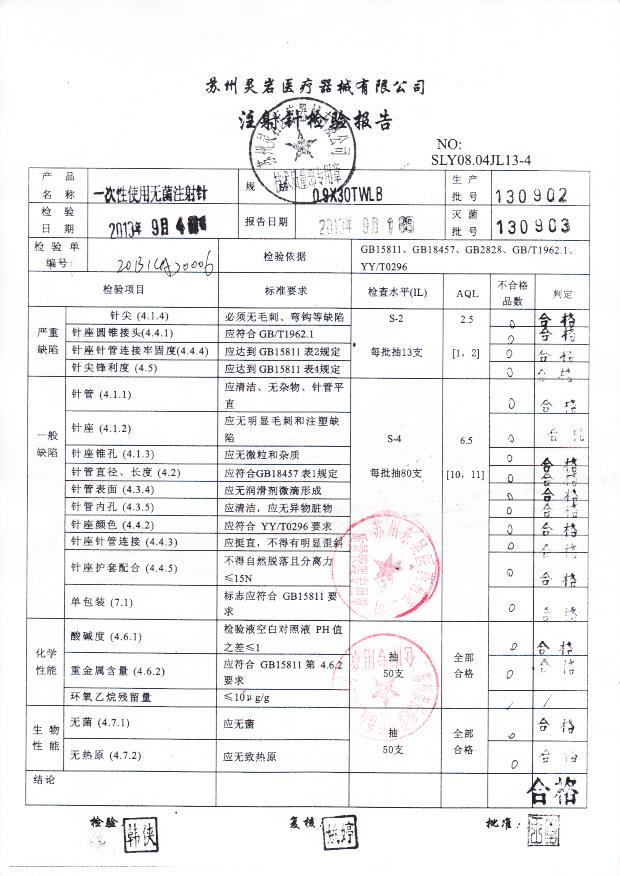 苏州灵岩医疗器械有限公司
注射针检验报告
NO:
SLY08.04JL13-4
产 品 名 称 一次性使用无菌注射针 规 格 0.9X30TWLB 生 产 批 号 130902
检 验 日 期 2013年 9月 4 报告日期 2013年 9月 灭 菌 批 号 130903
检 验 单 编号: 检验依据 GB15811、GB18457、GB2828、GB/T1962.1、
YY/T0296
检验项目 标准要求 检查水平(IL) AQL 不合格品数 判定
严重缺陷
针尖 (4.1.4) 必须无毛刺、弯钩等缺陷 S-2 2.5 0 合格
针座圆锥接头(4.4.1) 应符合 GB/T1962.1 0 合格
针座针管连接牢固度(4.4.4) 应达到 GB15811 表2规定 每批抽13支 [1, 2] 0 合格
针尖锋利度 (4.5) 应达到 GB15811 表4规定 0 合格
一般缺陷
针管 (4.1.1) 应清洁、无杂物、针管平直 0 合格
针座 (4.1.2) 应无明显毛刺和注塑缺陷 S-4 6.5 0 合格
针座锥孔 (4.1.3) 应无微粒和杂质 0 合格
针管直径、长度 (4.2) 应符合GB18457 表1规定 每批抽80支 [10, 11] 0 合格
针管表面 (4.3.4) 应无润滑剂微滴形成 0 合格
针管内孔 (4.3.5) 应清洁，应无异物脏物 0 合格
针座颜色 (4.4.2) 应符合 YY/T0296 要求 0 合格
针座针管连接 (4.4.3) 应挺直，不得有明显歪斜 0 合格
针座护套配合 (4.4.5) 不得自然脱落且分离力≤15N 0 合格
单包装 (7.1) 标志应符合 GB15811 要求 0 合格
化学性能
酸碱度 (4.6.1) 检验液空白对照液 PH 值之差≤1 抽50支 全部合格 0 合格
重金属含量 (4.6.2) 应符合 GB15811 第 4.6.2 要求 0 合格
环氧乙烷残留量 ≤10μg/g / /
生物性能
无菌 (4.7.1) 应无菌 抽50支 全部合格 0 合格
无热原 (4.7.2) 应无致热原 0 合格
结论 合格
检验: 韩侠 复核: 婷 批准: